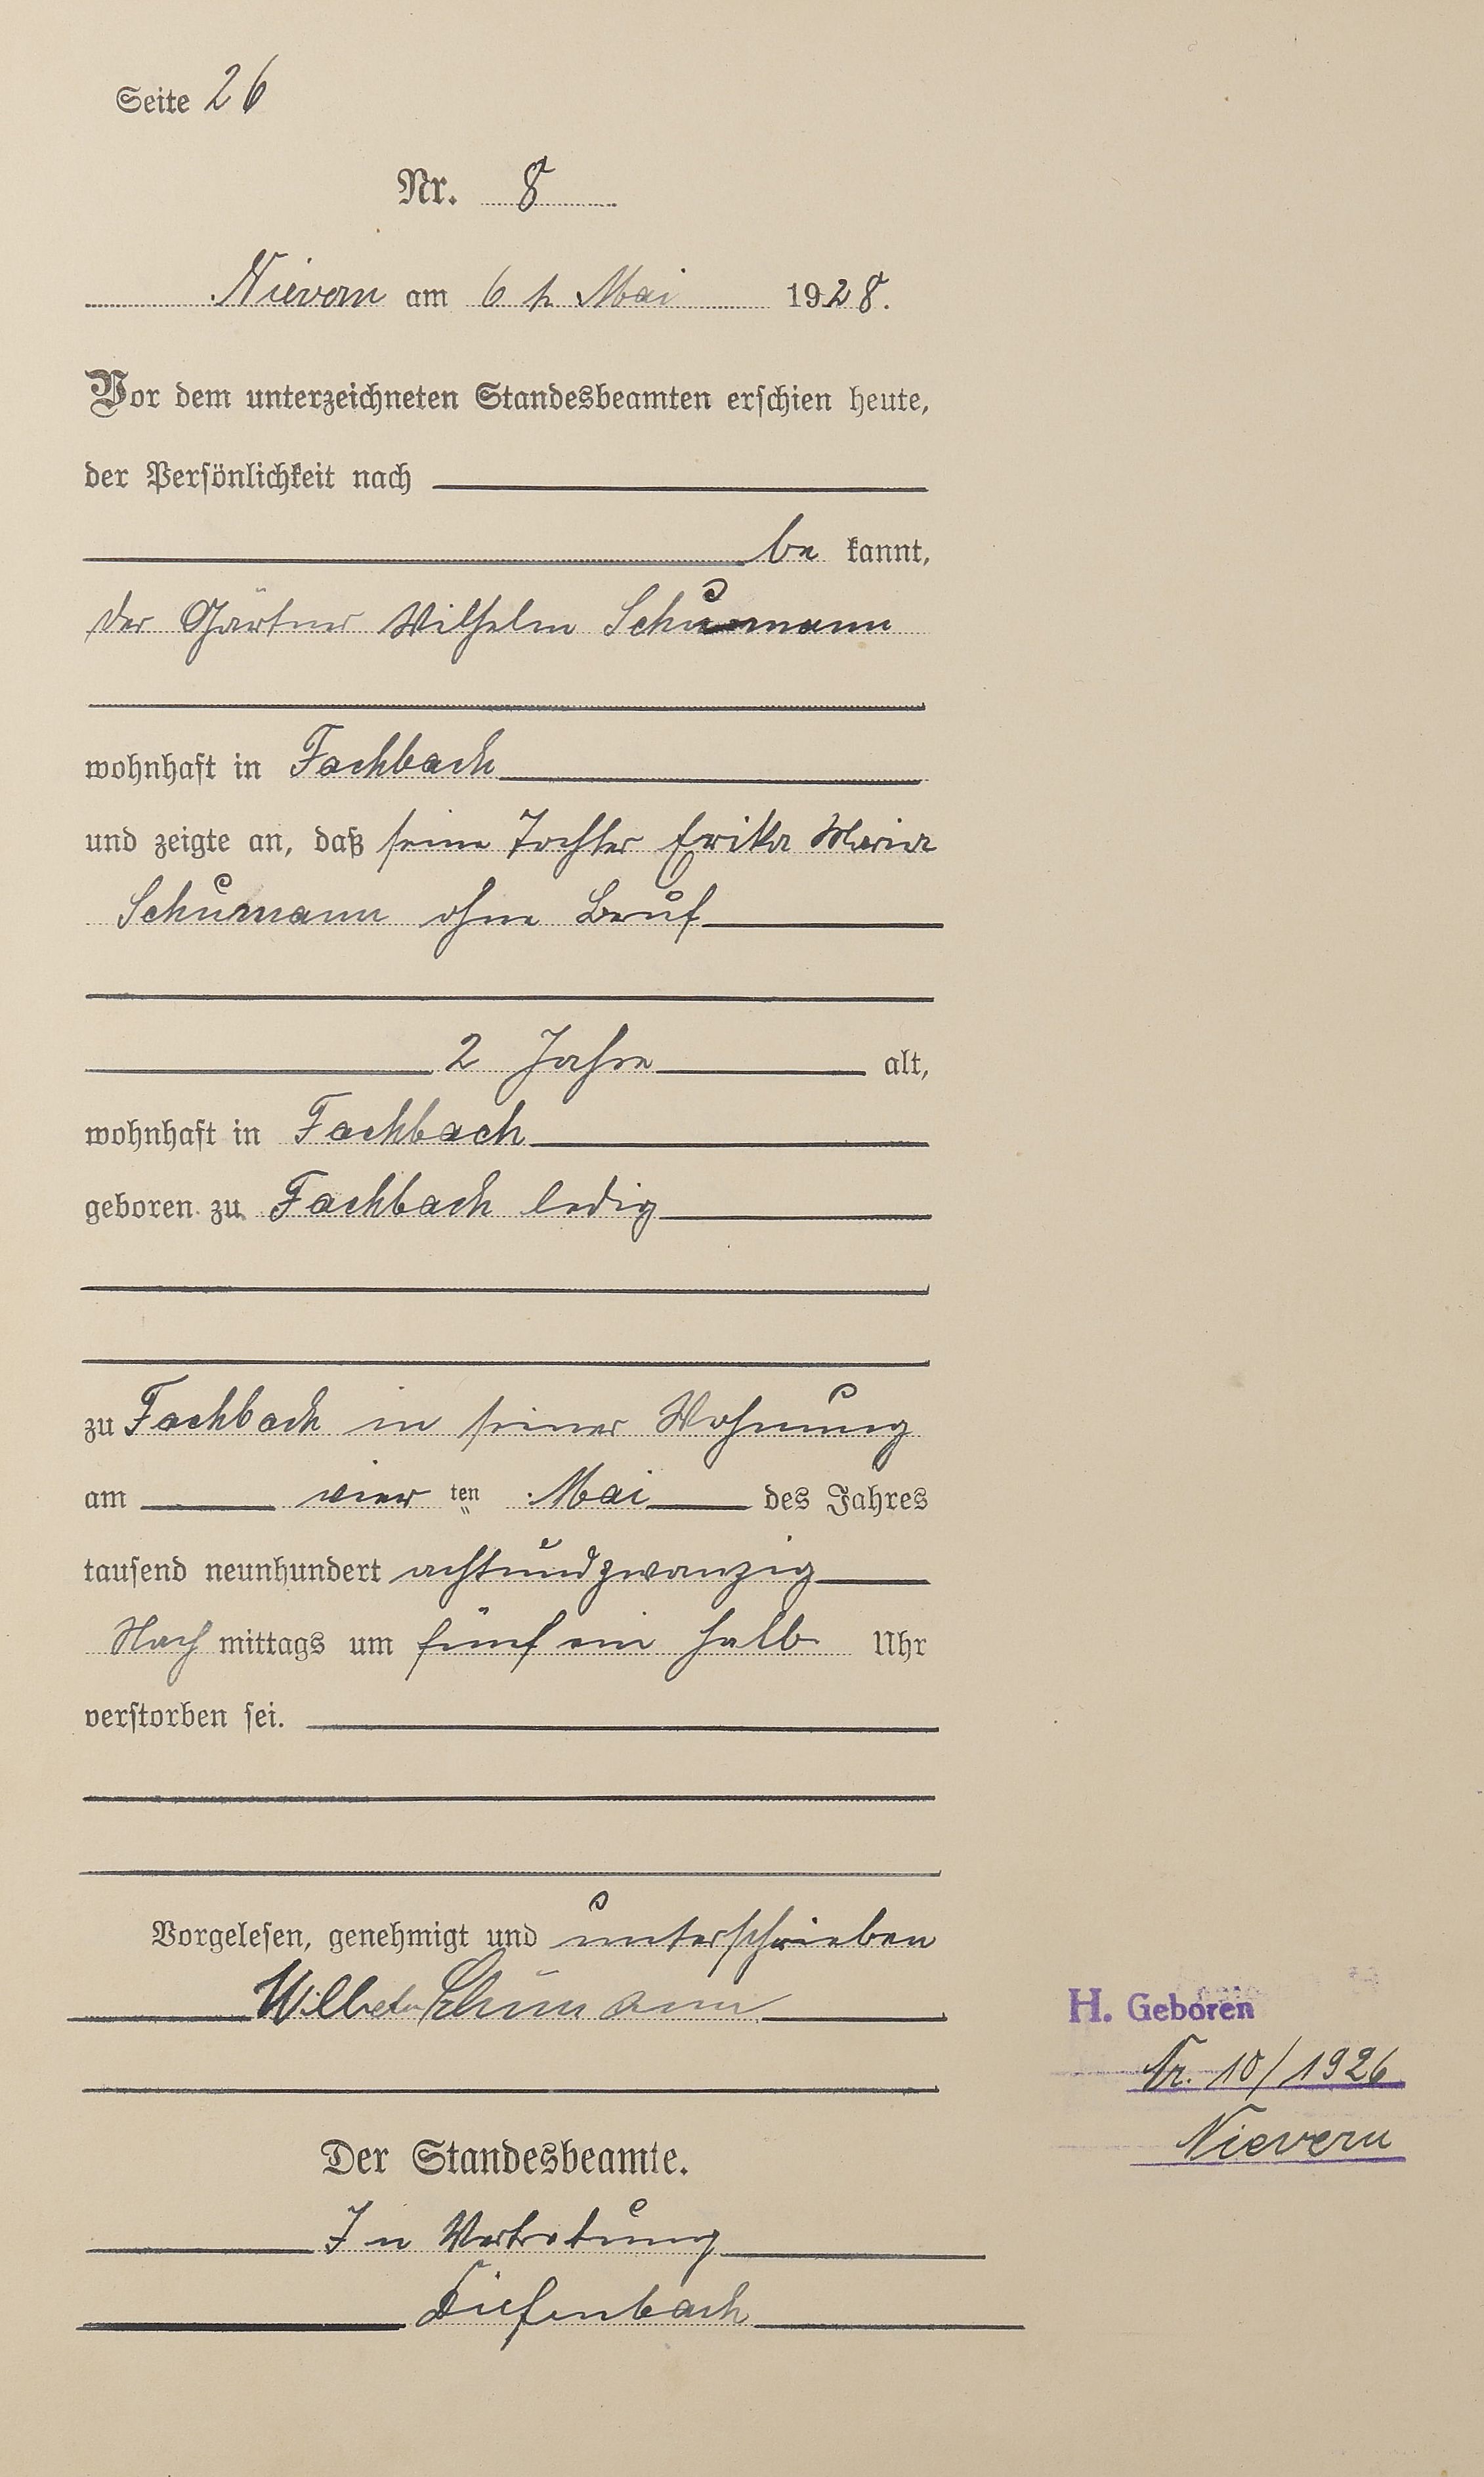 Seite 26
Nr. 8
Nievern am 6 t. Mai 1928.
Vor dem unterzeichneten Standesbeamten erschien heute,
der Persönlichkeit nach
be kannt,
der Gärtner Wilhelm Schumann
wohnhaft in Fachbach
und zeigte an, daß seine Tochter Erika Maria
Schumann ohne Beruf
2 Jahre alt,
wohnhaft in Fachbach
geboren zu Fachbach ledig
zu Fachbach in seiner Wohnung
am vier ten Mai des Jahres
tausend neunhundert achtundzwanzig
Nach mittags um fünf ein halb Uhr
verstorben sei.
Vorgelesen, genehmigt und unterschrieben
Wilhelm Schumann
H. Geboren
Nr. 10/1926
Nievern
Der Standesbeamte.
In Vertretung
Diefenbach